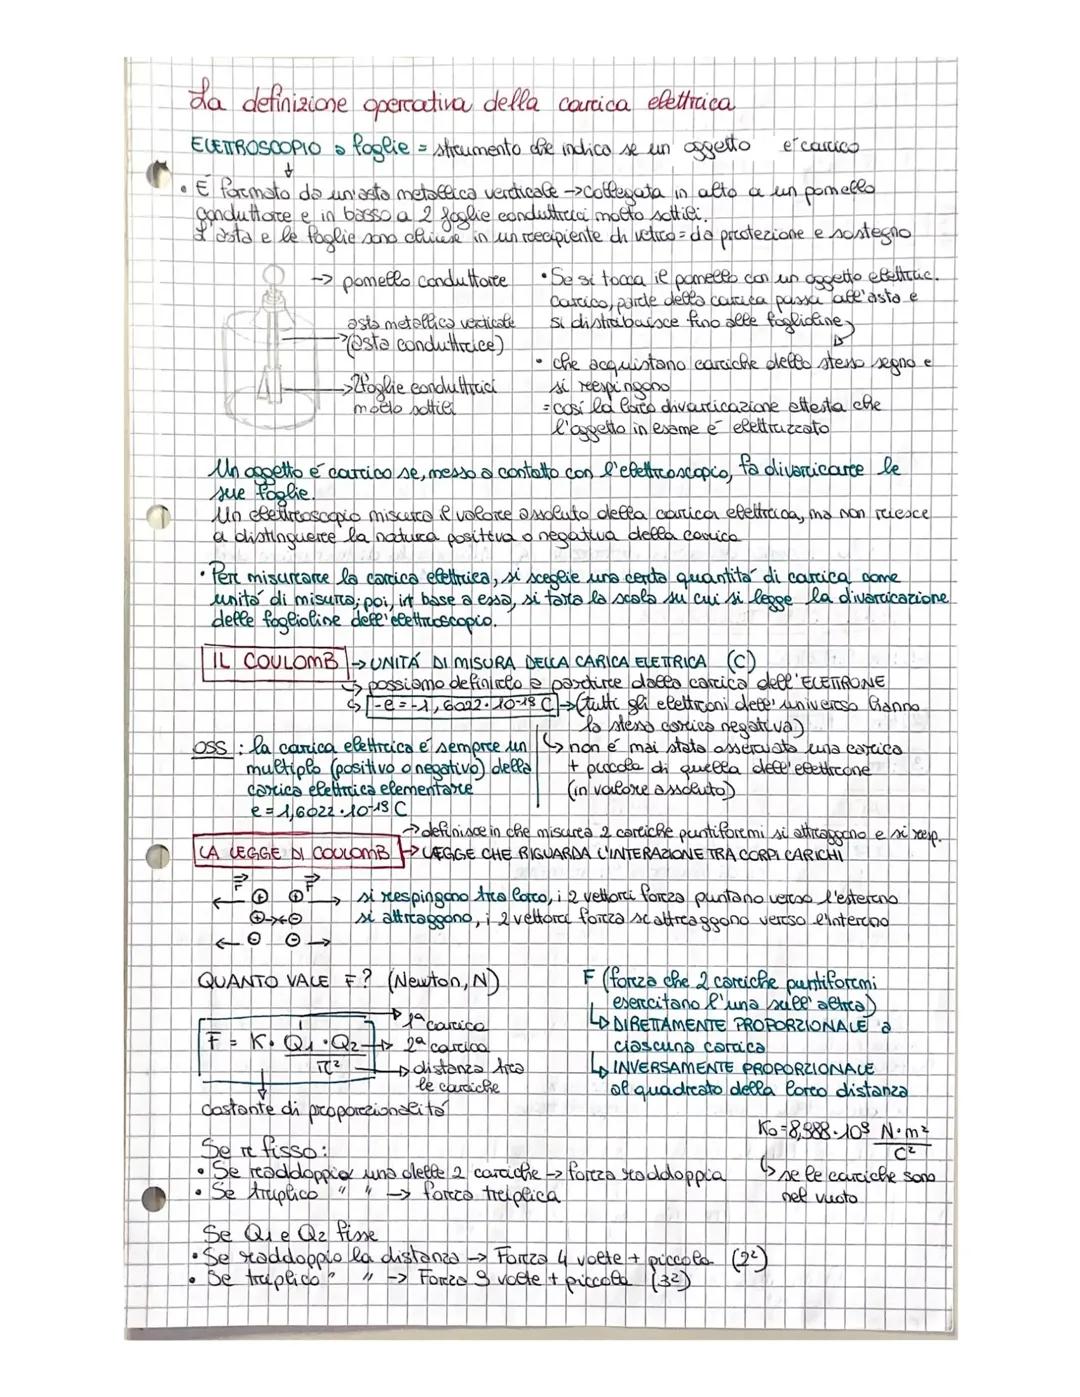 La definizione operativa della carica elettrica
ELETTROSCOPIO a foglie = strumento che indica se un oggetto è carico
• È formato da un'asta metallica verticale → collegata in alto a un pomello
conduttore e in basso a 2 foglie conduttrici molto sottili.
L'asta e le foglie sono chiuse in un recipiente di vetro = da protezione e sostegno
→ pomello conduttore
asta metallica verticale
→ (asta conduttrice)
→ 2 foglie conduttrici
molto sottili
• Se si tocca il pomello con un oggetto elettric.
carico, parte della carica passa all'asta e
si distribuisce fino alle foglioline
• che acquistano cariche dello stesso segno e
si respingono
= così la loro divaricazione attesta che
l'oggetto in esame é elettrizzato
Un oggetto é carico se, messo a contatto con l'elettroscopio, fa divaricare le
sue foglie.
Un elettroscopio misura il valore assoluto della carica elettrica, ma non riesce
a distinguere la natura positiva o negativa della carica
• Per misurare la carica elettrica, si sceglie una certa quantità di carica come
unità di misura; poi, in base a essa, si tara la scala su cui si legge la divaricazione
delle foglioline dell'elettroscopio.
IL COULOMB → UNITÁ DI MISURA DELLA CARICA ELETRICA (C)
↳ possiamo definirlo a partire dalla carica dell'ELETRONE
↳ -e = -1,6022·10-19 C → (tutti gli elettroni dell'universo hanno
la stessa carica negativa)
↳ non é mai stata osservata una carica
+ piccola di quella dell'elettrone
(in valore assoluto)
OSS : la carica elettrica é sempre un
multiplo (positivo o negativo) della
carica elettrica elementare
e = 1,6022·10-19 C
→ definisce in che misura 2 cariche puntiformi si attraggono e si resp.
LA LEGGE DI COULOMB → LEGGE CHE RIGUARDA L'INTERAZIONE TRA CORPI CARICHI
F F
← ⊕ ⊕ → si respingono tra loro, i 2 vettori forza puntano verso l'esterno
⊕→←⊖ si attraggono, i 2 vettori forza si attraggono verso l'interno
← ⊖ ⊖ →
QUANTO VALE F? (Newton, N)
F = K· Q1·Q2
r²
→ 1ª carica
→ 2ª carica
→ distanza tra
le cariche
costante di proporzionalitá
F (forza che 2 cariche puntiformi
esercitano l'una sull'altra)
↳ DIRETTAMENTE PROPORZIONALE a
ciascuna carica
↳ INVERSAMENTE PROPORZIONALE
al quadrato della loro distanza
K0 = 8,988·10⁹ N·m²
C²
↳ se le cariche sono
nel vuoto
Se r fisso:
• Se raddoppio una delle 2 cariche → forza raddoppia
• Se triplico " " → forza triplica
Se Q1 e Q2 fisse
• Se raddoppio la distanza → Forza 4 volte + piccola (2²)
• Se triplico " " → Forza 9 volte + piccola (3²)